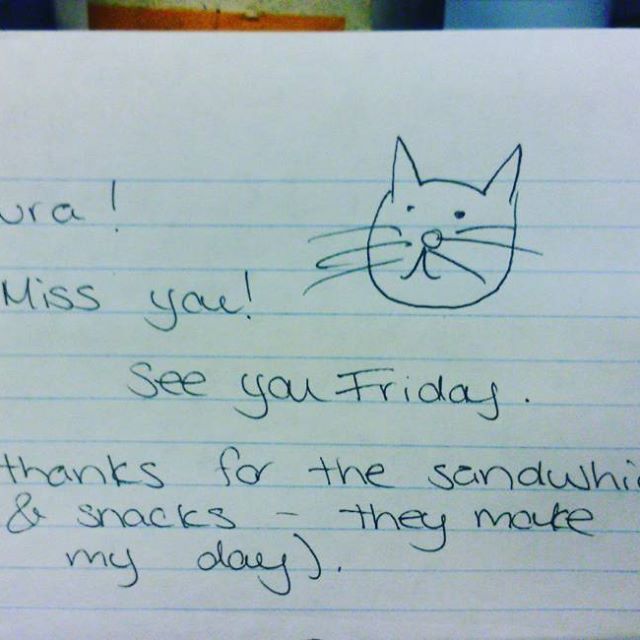 ura!
Miss you!
See you Friday.
thanks for the sandwhi
& snacks - they make
my day).